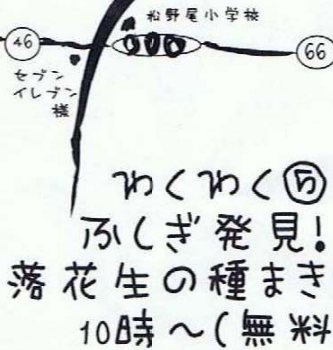 松野尾小学校
46
66
セブン
イレブン
様
わくわく⑤
ふしぎ発見!
落花生の種まき
10時～(無料